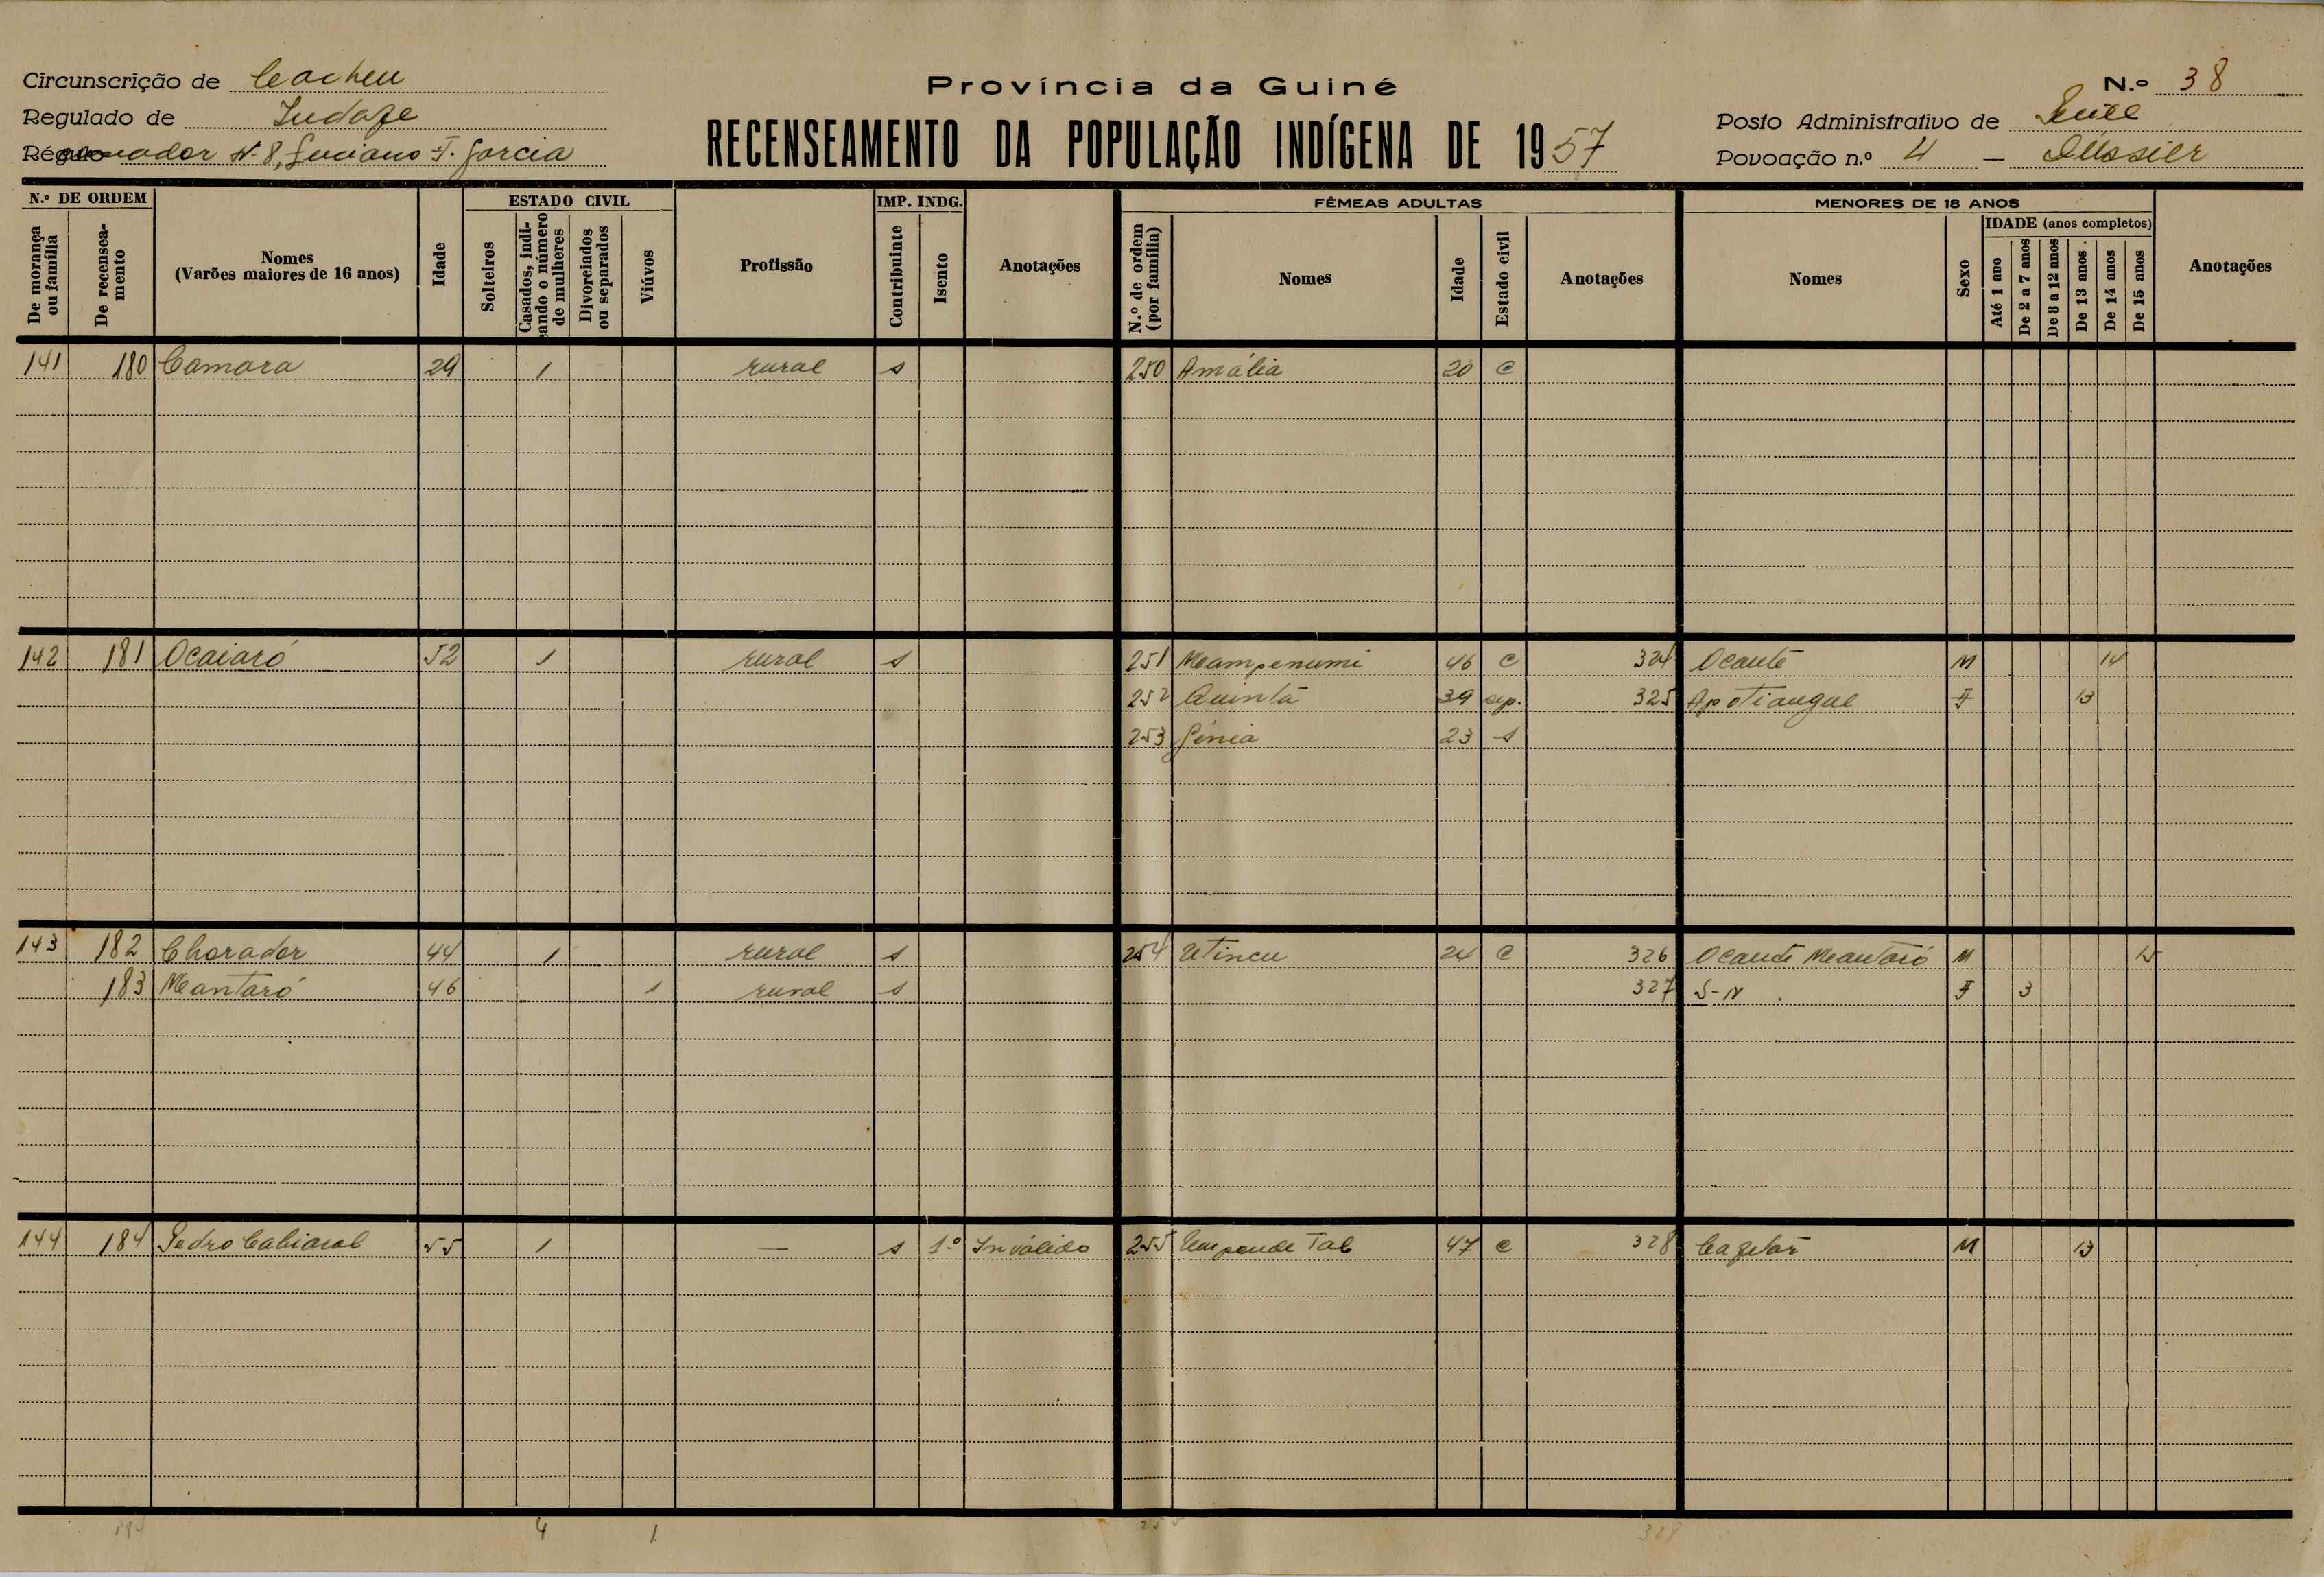 Circunscrição de Cacheu
Província da Guiné
N.º 38
Regulado de
Posto Administrativo de
RECENSEAMENTO DA POPULAÇÃO INDÍGENA DE 1957
Régulo N.º 8, Luciano T. Garcia
Povoação n.º 4 –
N.º DE ORDEM
De morança ou família
De recenseamento
Nomes
(Varões maiores de 16 anos)
Idade
ESTADO CIVIL
Solteiros
Casados, indicando o número de mulheres
Divorciados ou separados
Viúvos
Profissão
IMP. INDG.
Contribuinte
Isento
Anotações
FÊMEAS ADULTAS
N.º de ordem (por família)
Nomes
Idade
Estado civil
Anotações
MENORES DE 18 ANOS
Nomes
Sexo
IDADE (anos completos)
Até 1 ano
De 2 a 7 anos
De 8 a 12 anos
De 13 anos
De 14 anos
De 15 anos
Anotações
141 180 Camara 29 1 rural s 250 Amália 20 C
142 181 Ocaiaró 52 1 rural s 251 Meampenumi 46 C 324 Ocante M 14
252 Quinta 39 sep. 325 Apotiangue F 13
253 23 s
143 182 Chorador 44 1 rural s 254 Utincu 24 C 326 Ocante Meantaró M 15
183 Meantaró 46 1 rural s 327 S-N F 3
144 184 Pedro 55 1 — s 1º Inválido 255 47 C 328 M 13
184 4 1 255 328